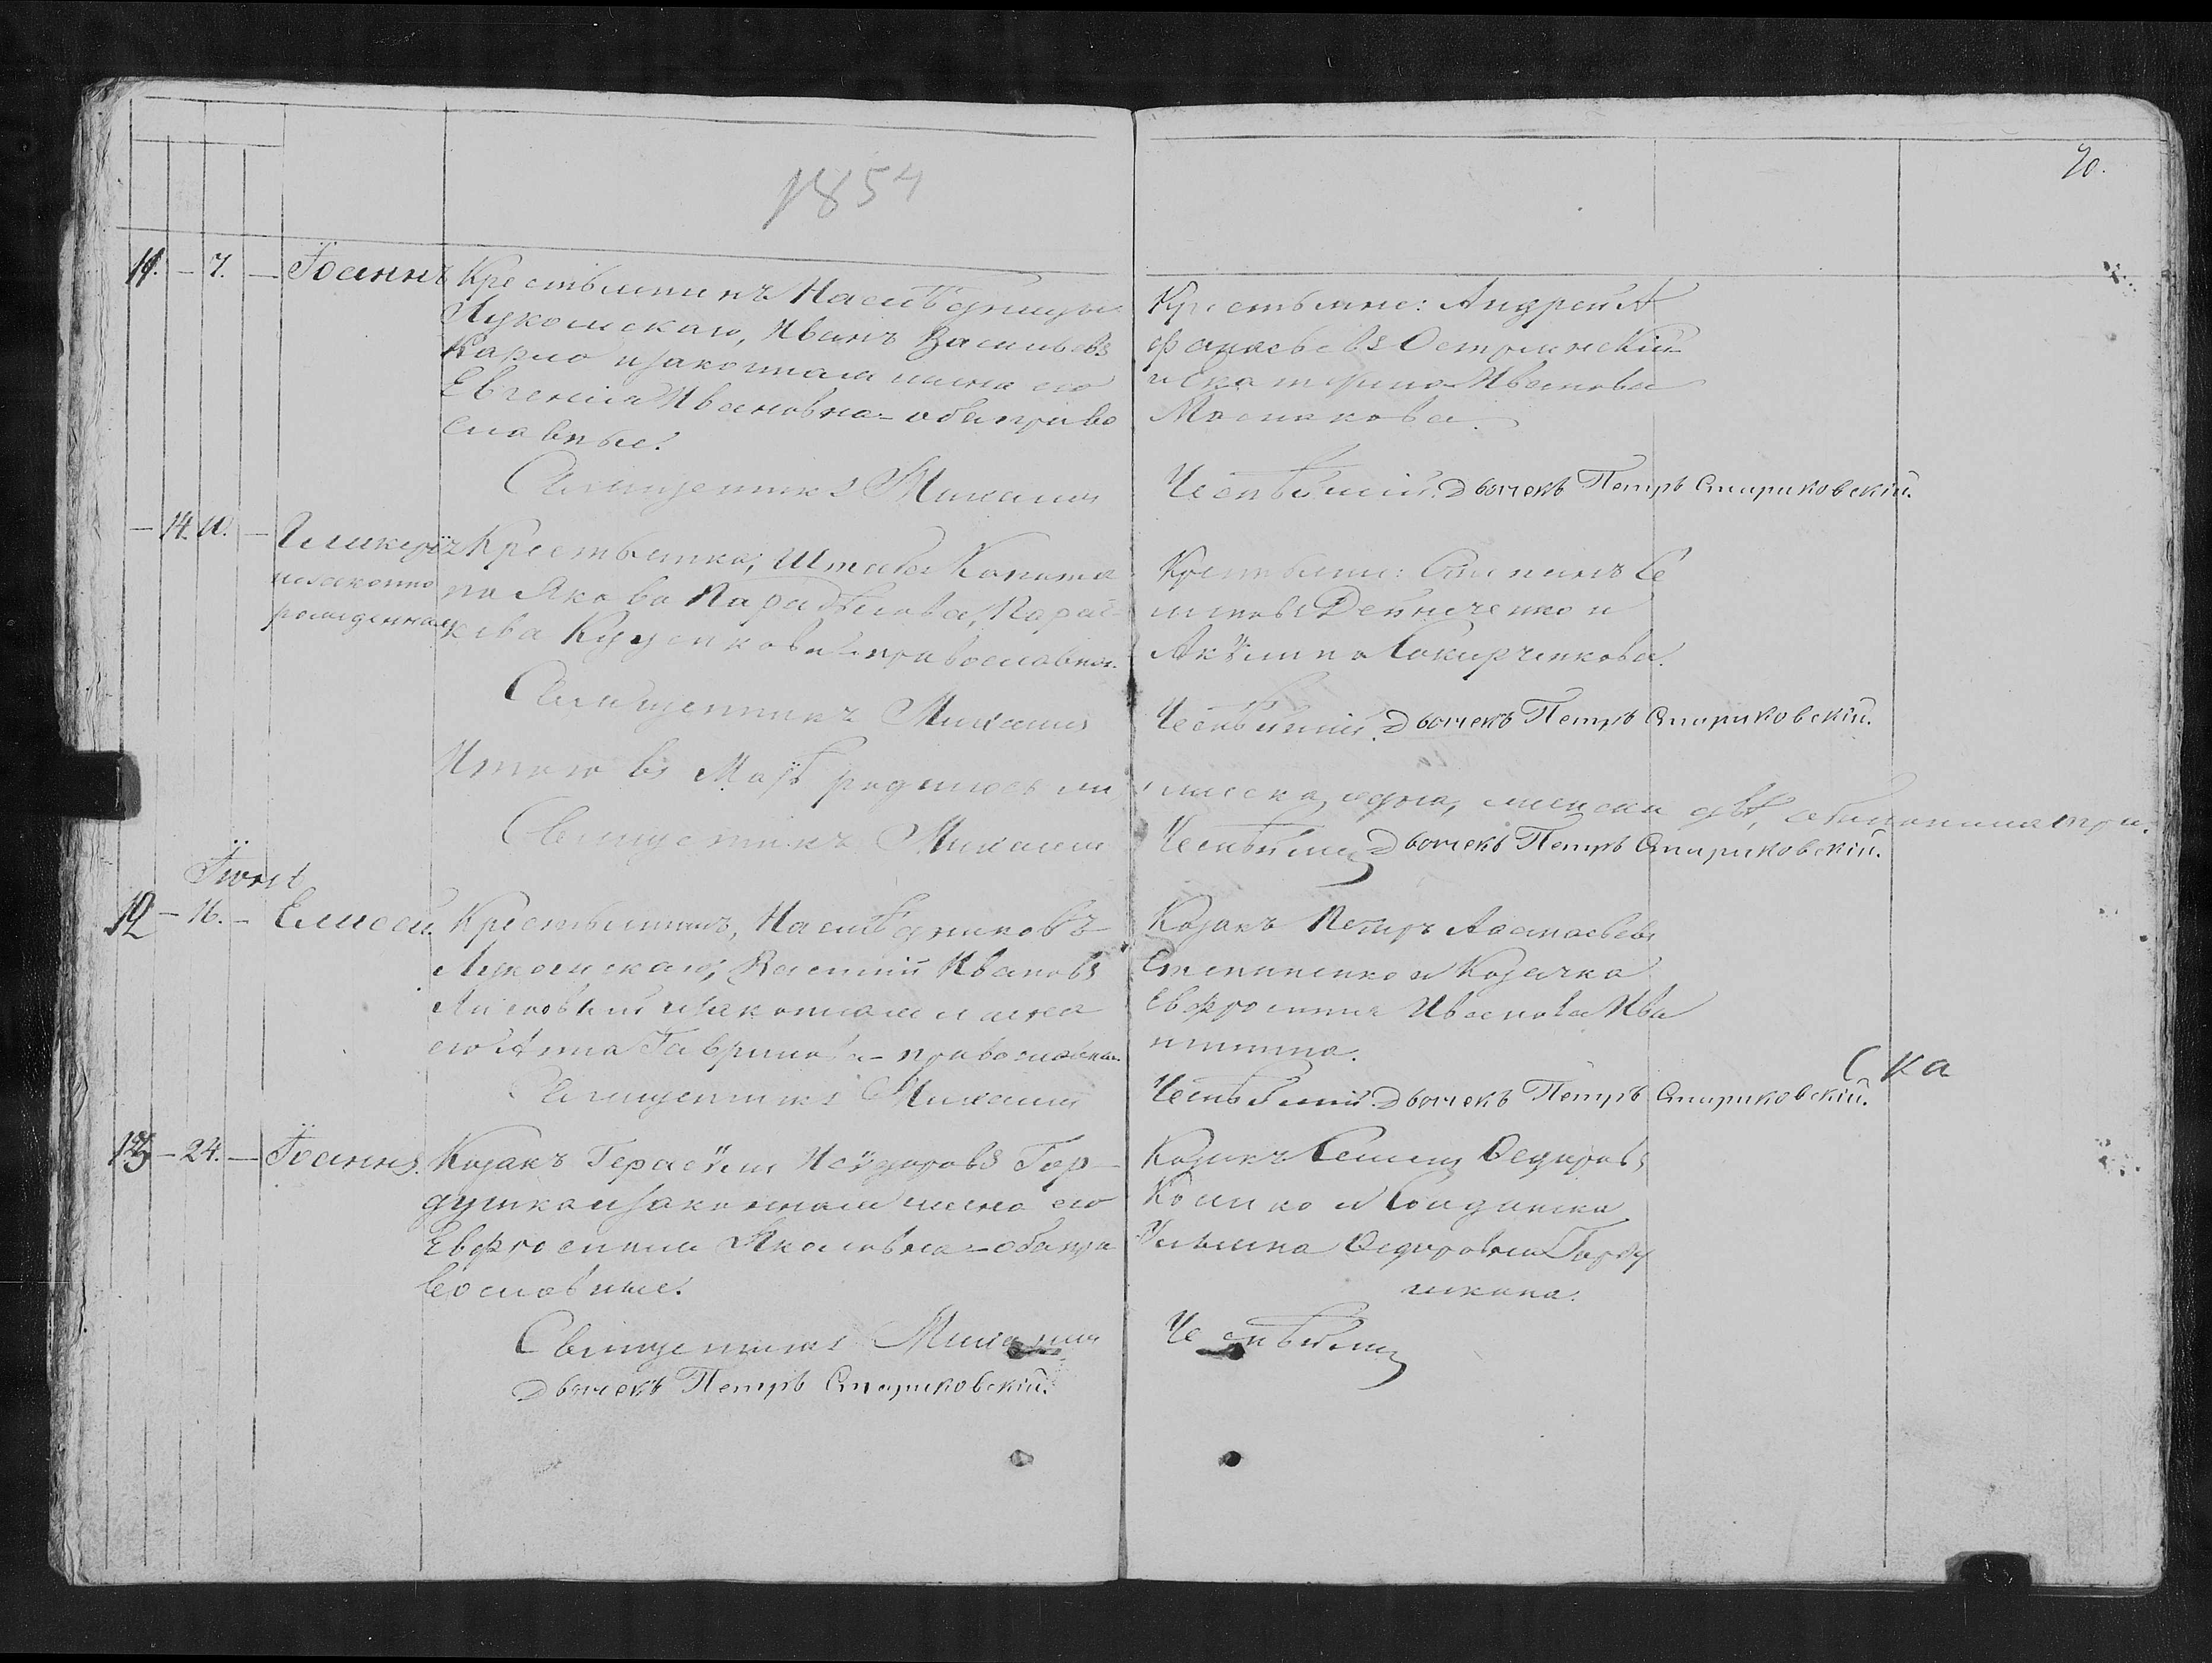 1854
20.
11. – 7. – Іоаннъ Крестьянинъ Наслѣдницы
Лукомскаго, Иванъ Васильевъ
Карло и законная жена его
Евгенія Ивановна – оба право
славные.
Священникъ Михаилъ
Крестьяне: Андрей А
фанасьевъ Острянскій
и Екатерина Иванова
Маслакова.
Дьячекъ Петръ Стариковскій.
– 14. 10. – Гликерія
незаконно
рожденная
Крестьянка, Штабсъ Капита
на Якова Парадѣлова, Парас
кева Куценкова – православная.
Священникъ Михаилъ
Крестьяне: Степанъ Се
меновъ Дейниченко и
Акѵлина Сакирченкова.
Дьячекъ Петръ Стариковскій.
Итого въ Маѣ родилось му
жеска одно, женска двѣ, обоего пола три.
Священникъ Михаилъ
Дьячекъ Петръ Стариковскій.
Іюнь
12 – 16. – Елисей. Крестьянинъ, Наслѣдниковъ
Лукомскаго, Василій Ивановъ
и законная жена
его Анна Гаврилова – православные.
Священникъ Михаилъ
Козакъ Петръ Аѳанасьевъ
Степаненко и Козачка
Евфросинія Иванова Ива
нинина.
Дьячекъ Петръ Стариковскій.
ска
13 – 24. – Іоаннъ. Козакъ Герасѵмъ Исѵдоровъ Гор
душка и законная жена его
Евфросинія Яковлевна – оба пра
вославные.
Священникъ Михаилъ
Дьячекъ Петръ Стариковскій.
Козакъ Семенъ Ѳедоровъ
Кошко и Солдатка
Ульяна Ѳедоровна Горду
шкина.